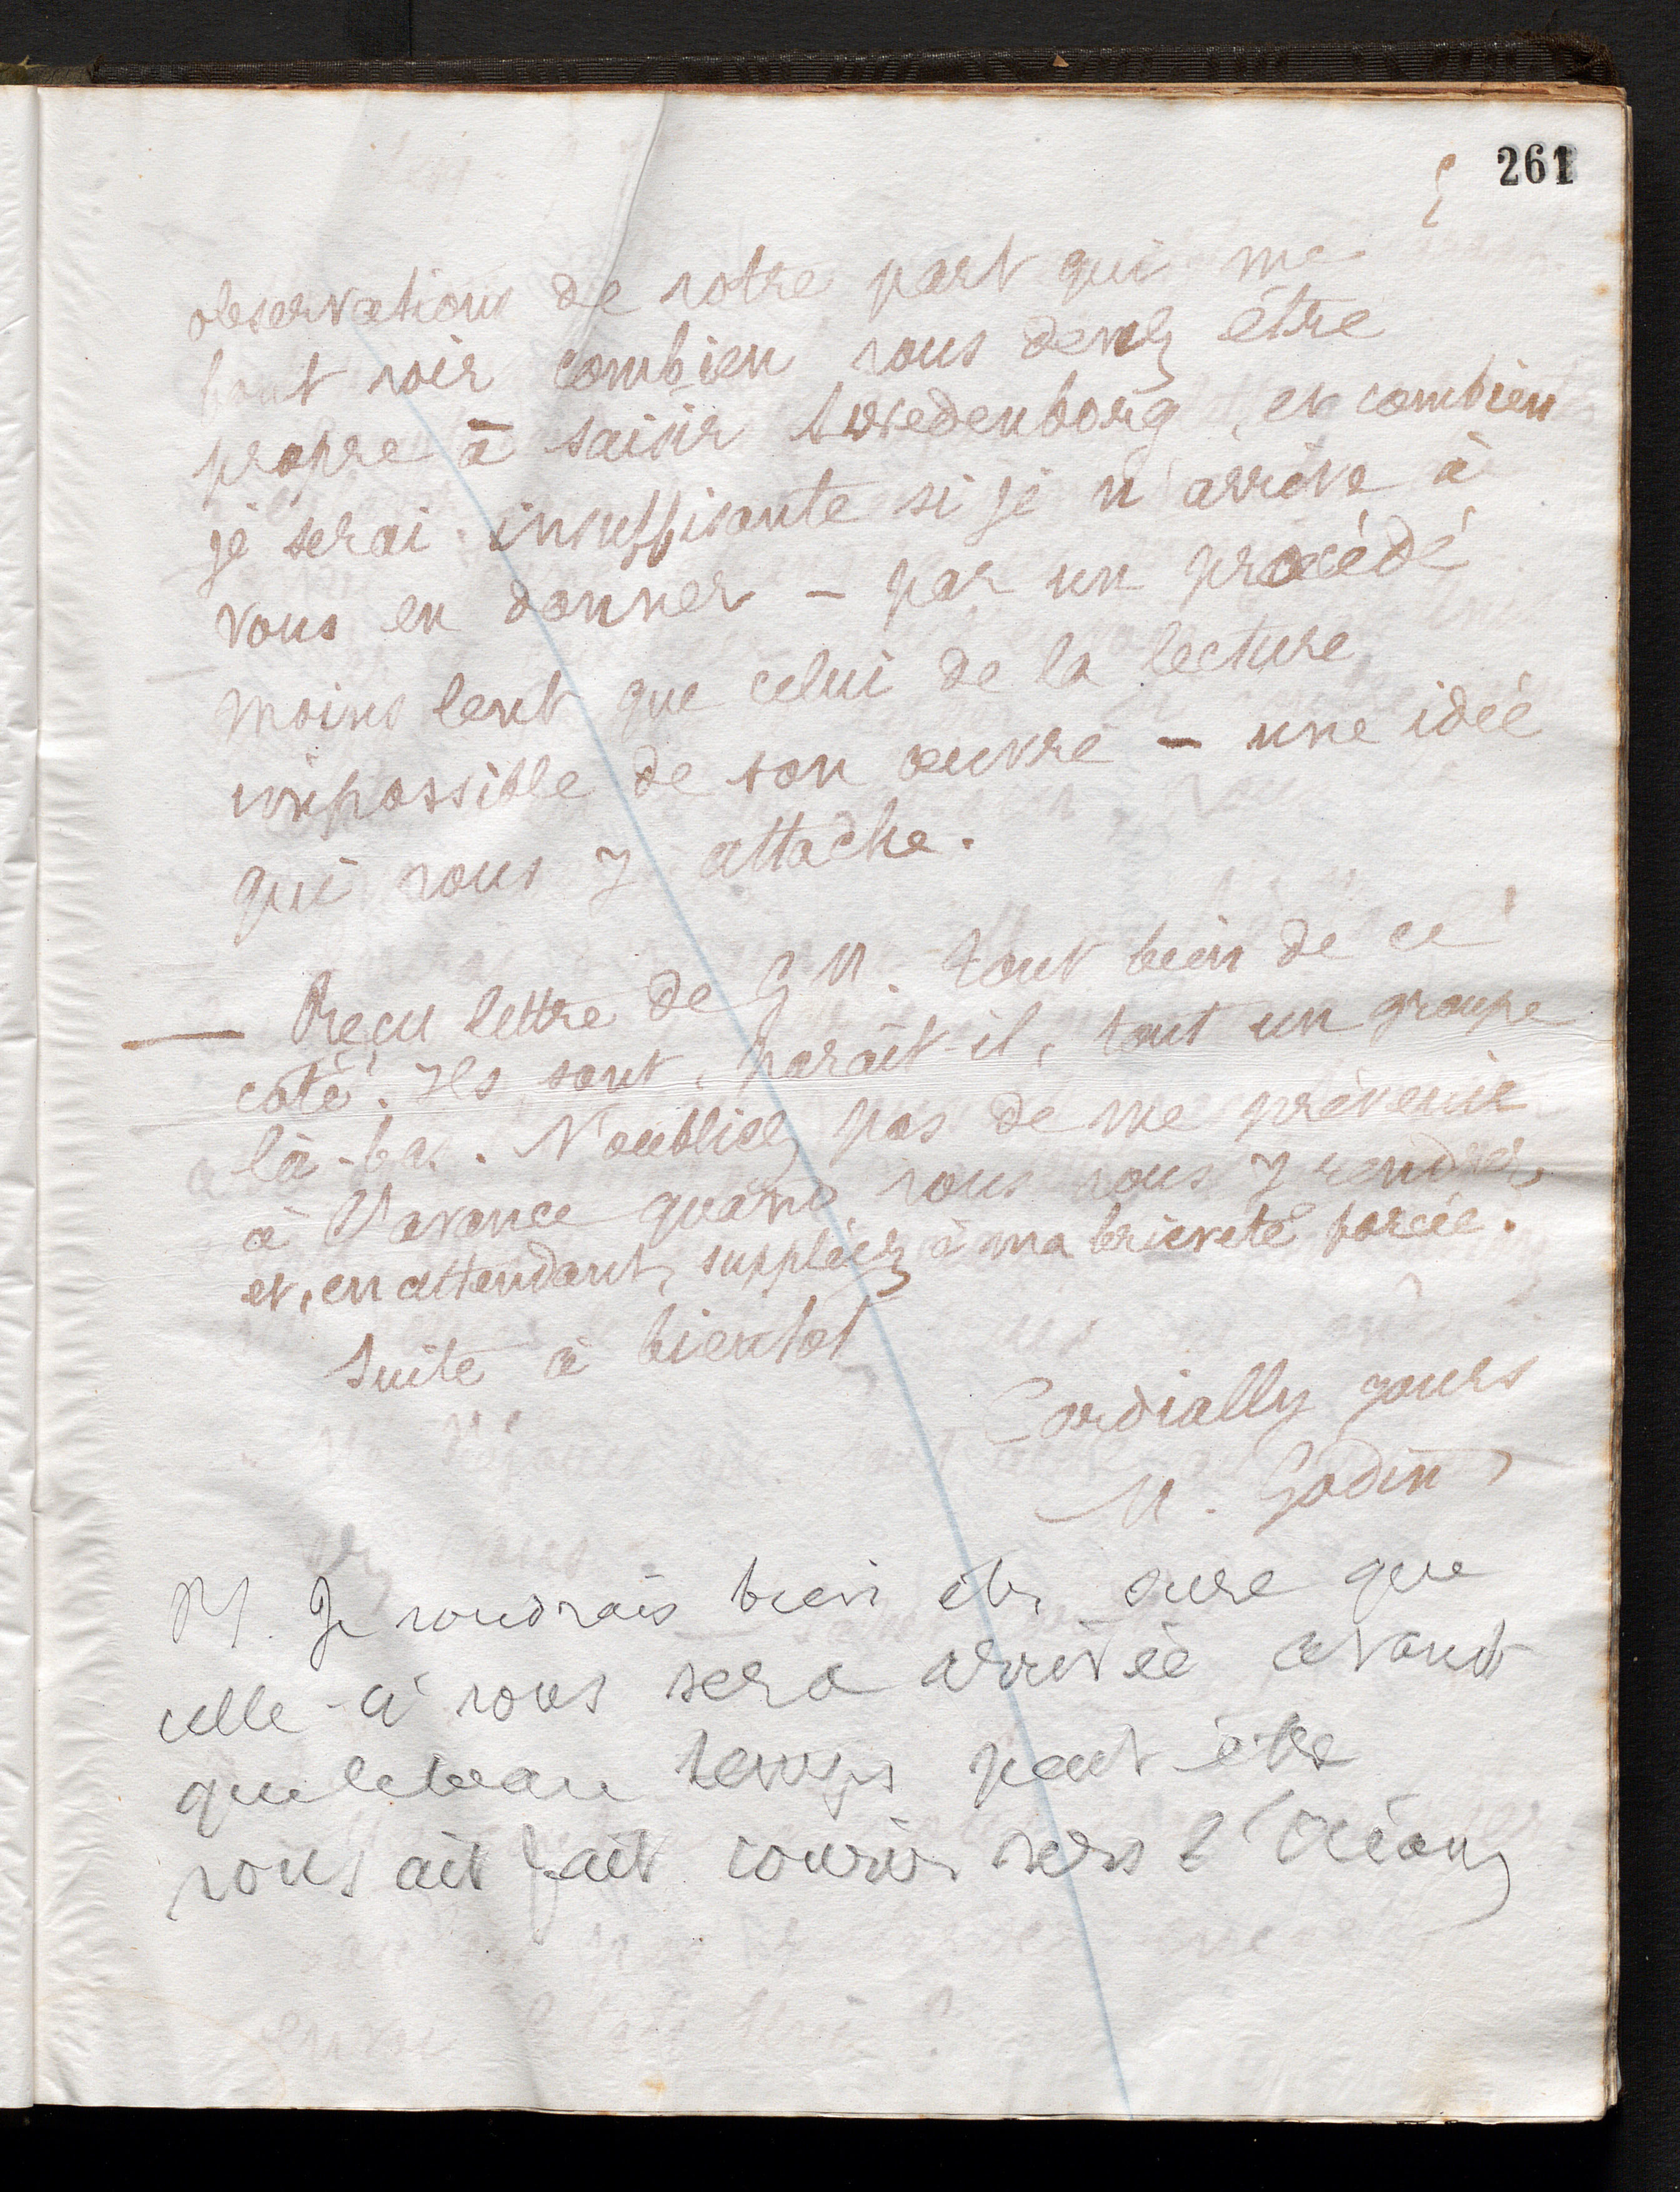 261
observations de votre part qui me
font voir combien vous devez être
propre à saisir Swedenborg, et combien
je serai insuffisante si je n'arrive à
vous en donner — par un procédé
moins lent que celui de la lecture
impossible de son œuvre — une idée
qui vous y attache.
— Reçu lettre de G M. tout bien de ce
côté. Ils sont, paraît-il, tout un groupe
là-bas. N'oubliez pas de me prévenir
à l'avance quand vous vous y rendrez,
et, en attendant, suppléez à ma brièveté forcée.
Suite à bientot
Cordially yours
M. Godin
PS. Je voudrais bien être sure que
celle-ci vous sera arrivée avant
que le beau temps peut être
vous ait fait courir vers l'Océan